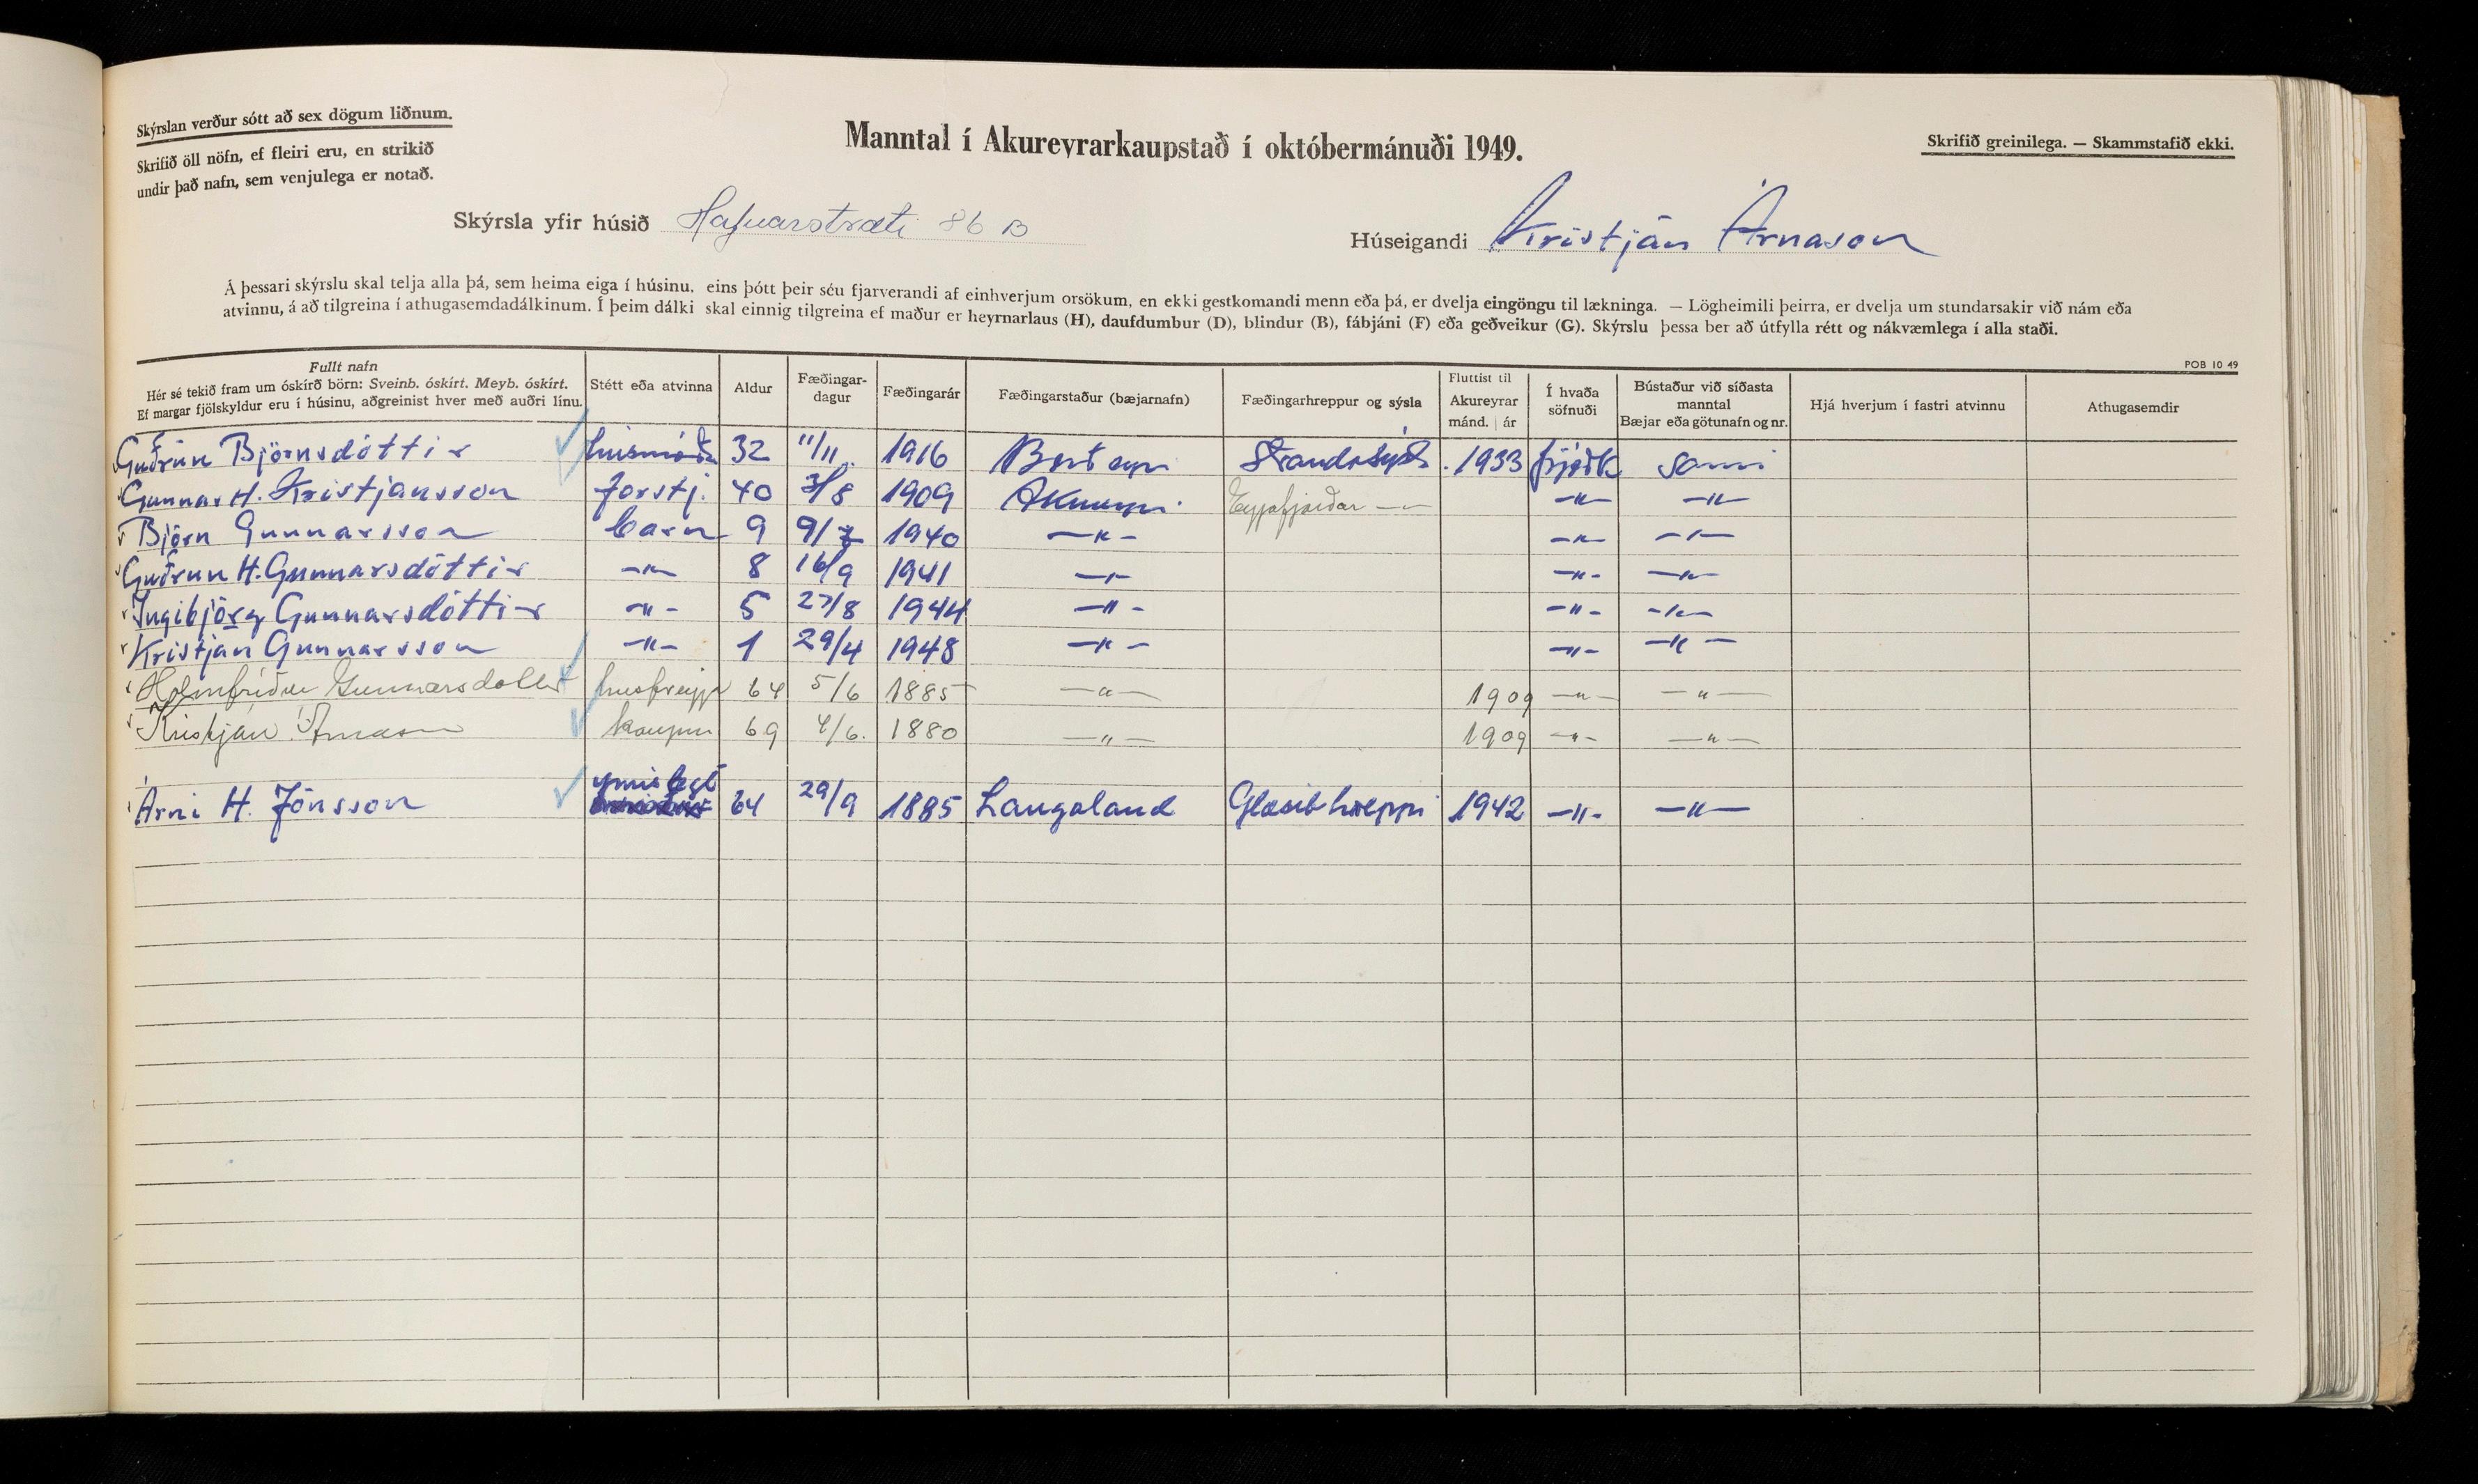 Skýrslan verður sótt að sex dögum liðnum.
Skrifið öll nöfn, ef fleiri eru, en strikið
undir það nafn, sem venjulega er notað.
Manntal í Akureyrarkaupstað í októbermánuði 1949.
Skrifið greinilega. — Skammstafið ekki.
Skýrsla yfir húsið Hafnarstræti 86 B
Húseigandi Kristján Árnason
Á þessari skýrslu skal telja alla þá, sem heima eiga í húsinu, eins þótt þeir séu fjarverandi af einhverjum orsökum, en ekki gestkomandi menn eða þá, er dvelja eingöngu til lækninga. — Lögheimili þeirra, er dvelja um stundarsakir við nám eða
atvinnu, á að tilgreina í athugasemdadálkinum. Í þeim dálki skal einnig tilgreina ef maður er heyrnarlaus (H), daufdumbur (D), blindur (B), fábjáni (F) eða geðveikur (G). Skýrslu þessa ber að útfylla rétt og nákvæmlega í alla staði.
POB 10 49
Fullt nafn
Hér sé tekið fram um óskírð börn: Sveinb. óskírt. Meyb. óskírt.
Ef margar fjölskyldur eru í húsinu, aðgreinist hver með auðri línu.
Stétt eða atvinna
Aldur
Fæðingar-
dagur
Fæðingarár
Fæðingarstaður (bæjarnafn)
Fæðingarhreppur og sýsla
Fluttist til
Akureyrar
mánd. | ár
Í hvaða
söfnuði
Bústaður við síðasta
manntal
Bæjar eða götunafn og nr.
Hjá hverjum í fastri atvinnu
Athugasemdir
Guðrún Björnsdóttir húsmóðir 32 11/11. 1916 Borðeyri Strandasýsl. 1933 þjóðk sami
Gunnar H. Kristjánsson forstj. 40 3/8 1909 Akureyri. Eyjafjarðar — —"— —"—
Björn Gunnarsson barn 9 9/7 1940 —"— —"— —"—
Guðrún H. Gunnarsdóttir —"— 8 16/9 1941 —"— —"— —"—
Ingibjörg Gunnarsdóttir —"— 5 27/8 1944 —"— —"— —"—
Kristján Gunnarsson —"— 1 29/4 1948 —"— —"— —"—
Hólmfríður Gunnarsdóttir húsfreyja 64 5/6 1885 —"— 1909 —"— —"—
Kristján Árnason kaupm 69 4/6. 1880 —"— 1909 —"— —"—
Árni H. Jónsson ýmislegt 64 29/9 1885 Laugaland Glæsibhreppi 1942 —"— —"—